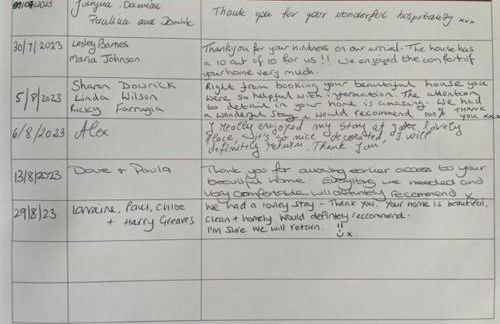 Justyna, Damian
Paulina and Dominik
Thank you for your wonderful hospitality xxx
30/7/2023
Lesley Barnes
Maria Johnson
Thankyou for your kindness on our arrival. The house has
a 10 out of 10 for us!! We enjoyed the comfort of
your home very much.
5/8/2023
Sharon Dowrick
Linda Wilson
Ricky Farrugia
Right from booking your beautiful house you
were so helpful with information. The attention
to detail in your home is amazing. We had
a wonderful stay & would recommend 100% THANK
YOU xxx
6/8/2023
Alex
I Really enjoyed my stay at your lovely
place. It's so nice decorated. I will
definitely return. Thank you!
13/8/2023
Dave + Paula
Thank you for allowing earlier access to your
beautiful home. Everything we needed and
very comfortable. Will definitely recommend x
29/8/23
Lorraine, Paul, Chloe
+ Harry Greaves
We had a lovely stay - Thank you. Your home is beautiful,
clean + homely. Would definitey reccommend.
I'm sure we will return. x